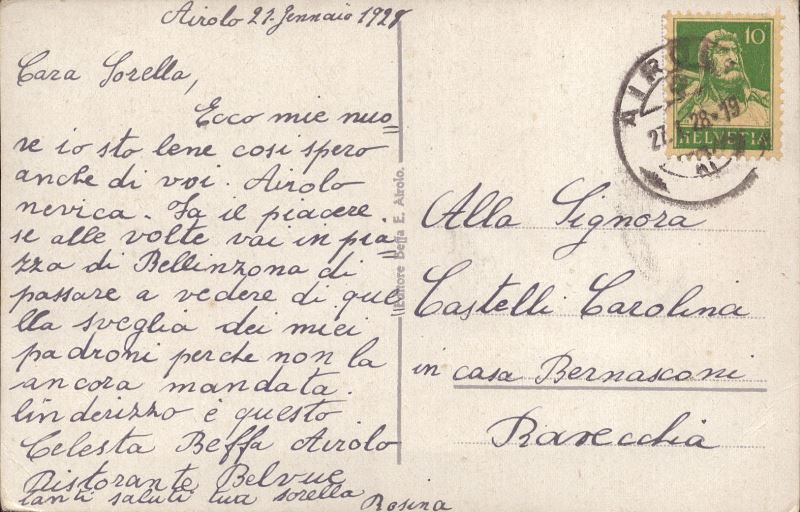 Airolo 21. Jennaio 1928
Cara Sorella,
Ecco mie nuo=
re io sto bene cosi spero
anche di voi. Airolo
nevica. Fa il piacere.
se alle volte vai in pia=
zza di Bellinzona di
passare a vedere di que
lla sveglia dei miei
padroni perche non la
ancora mandata.
linderizzo è questo
Celesta Beffa Airolo
Ristorante Belvue
tanti saluti tua sorella
Rosina
Editore Beffa E. Airolo.
10
HELVETIA
AIROLO
27.I.28-19
Alla Signora
Castelli Carolina
in casa Bernasconi
Ravecchia